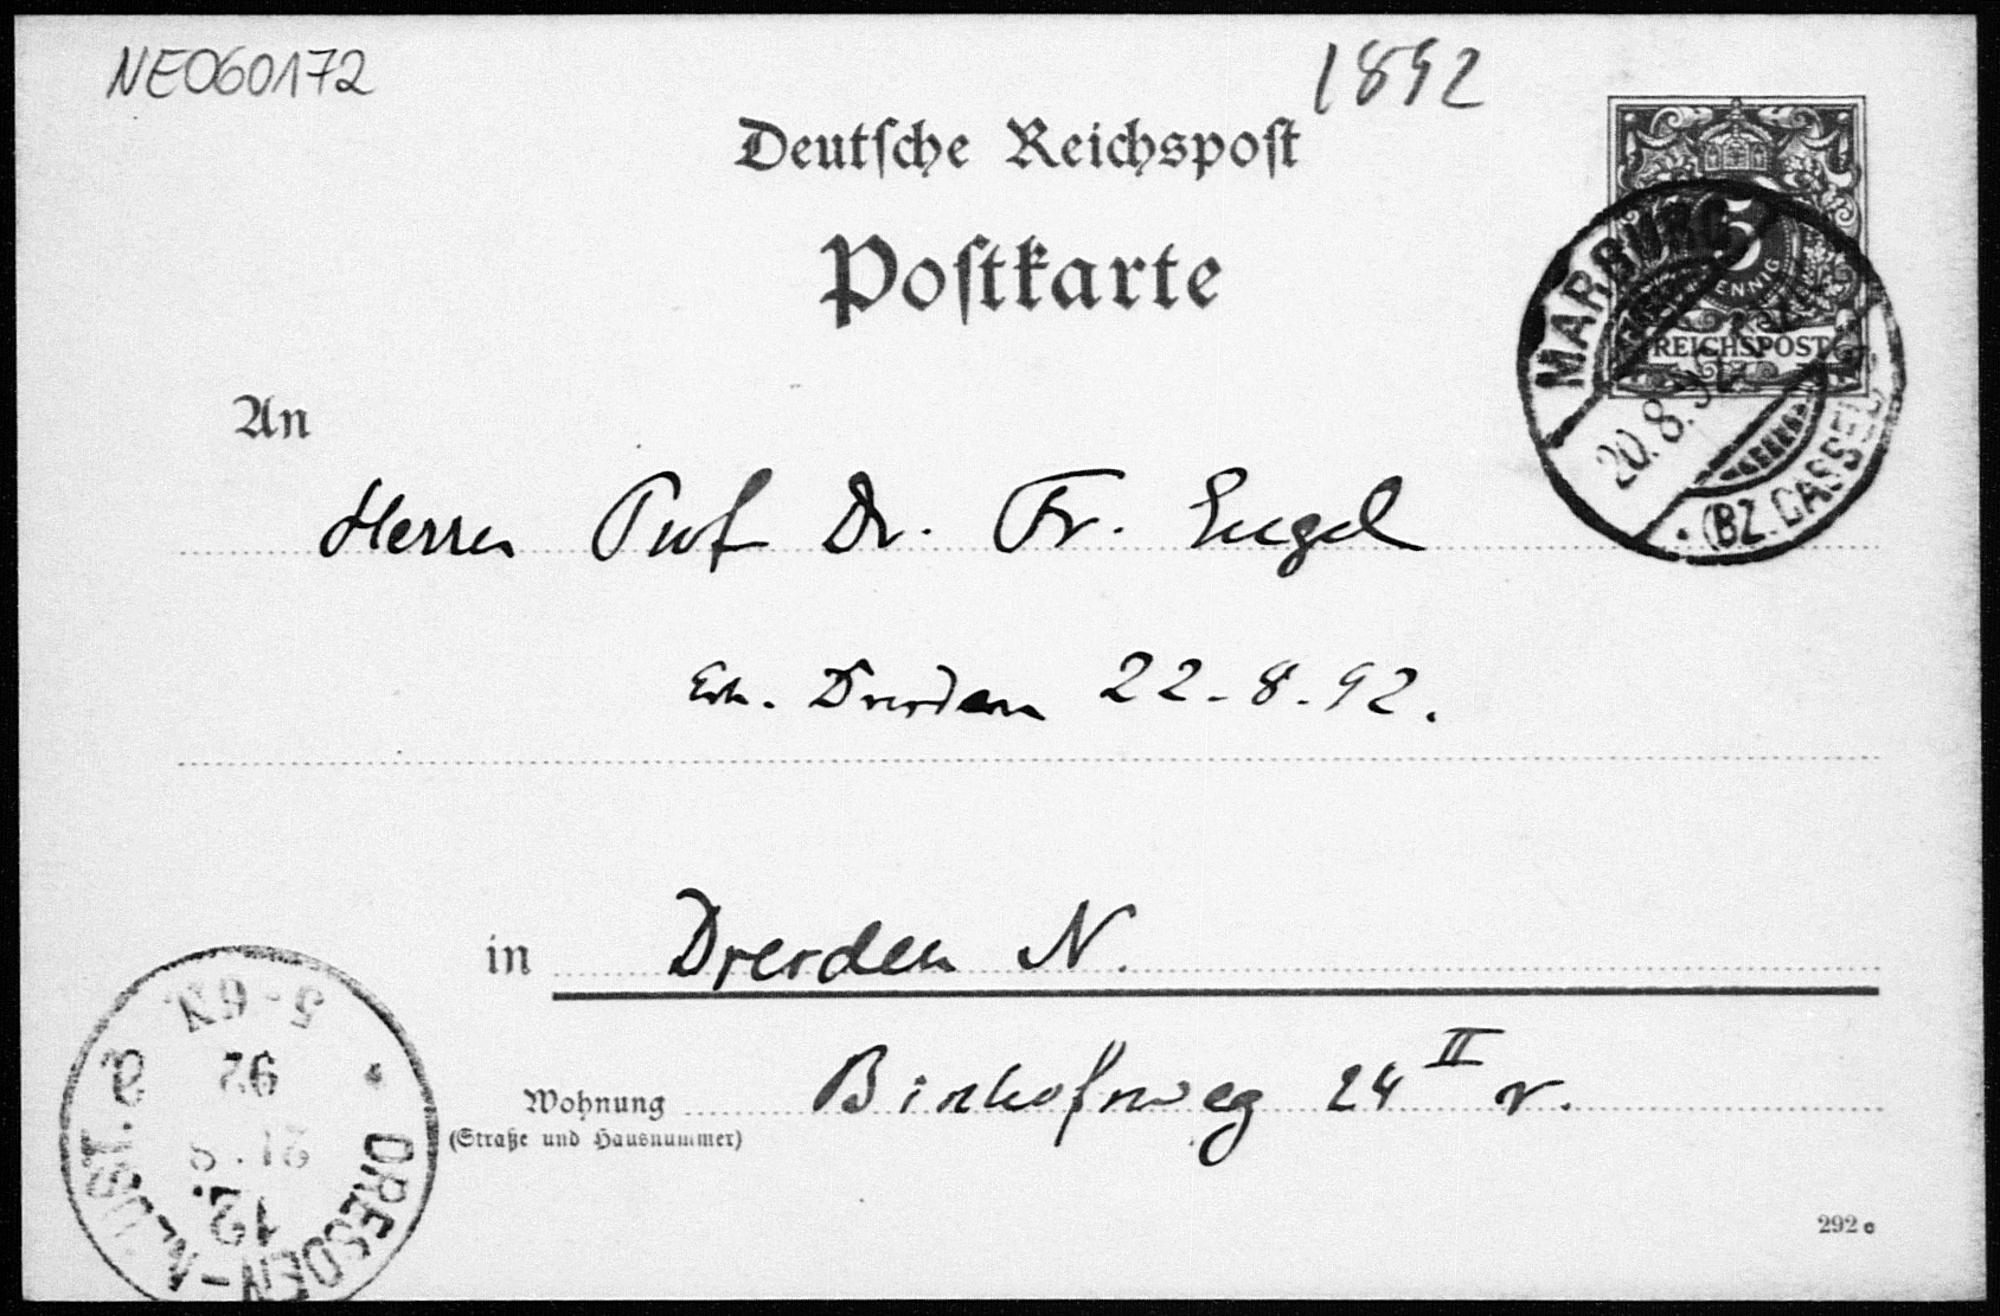 NE060172
1892
Deutsche Reichspost
Postkarte
5
PFENNIG
REICHSPOST
MARBURG
20.8.92
* (BZ. CASSEL)
An
Herrn Prof Dr. Fr. Engel
Erh. Dresden 22.8.92.
in Dresden N.
Wohnung Bischofsweg 24 II r.
(Straße und Hausnummer)
DRESDEN-NEUST. a *
12.
21.8
92
5-6N.
292 c